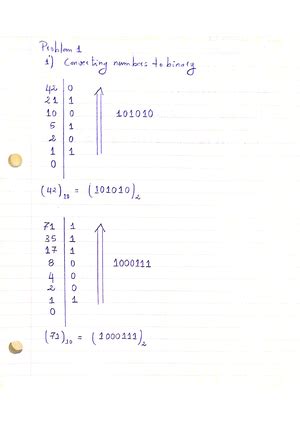 Problem 1
1) Converting numbers to binary
42 0
21 1
10 0 101010
5 1
2 0
1 1
0
(42)10 = (101010)2
71 1
35 1
17 1
8 0 1000111
4 0
2 0
1 1
0
(71)10 = (1000111)2